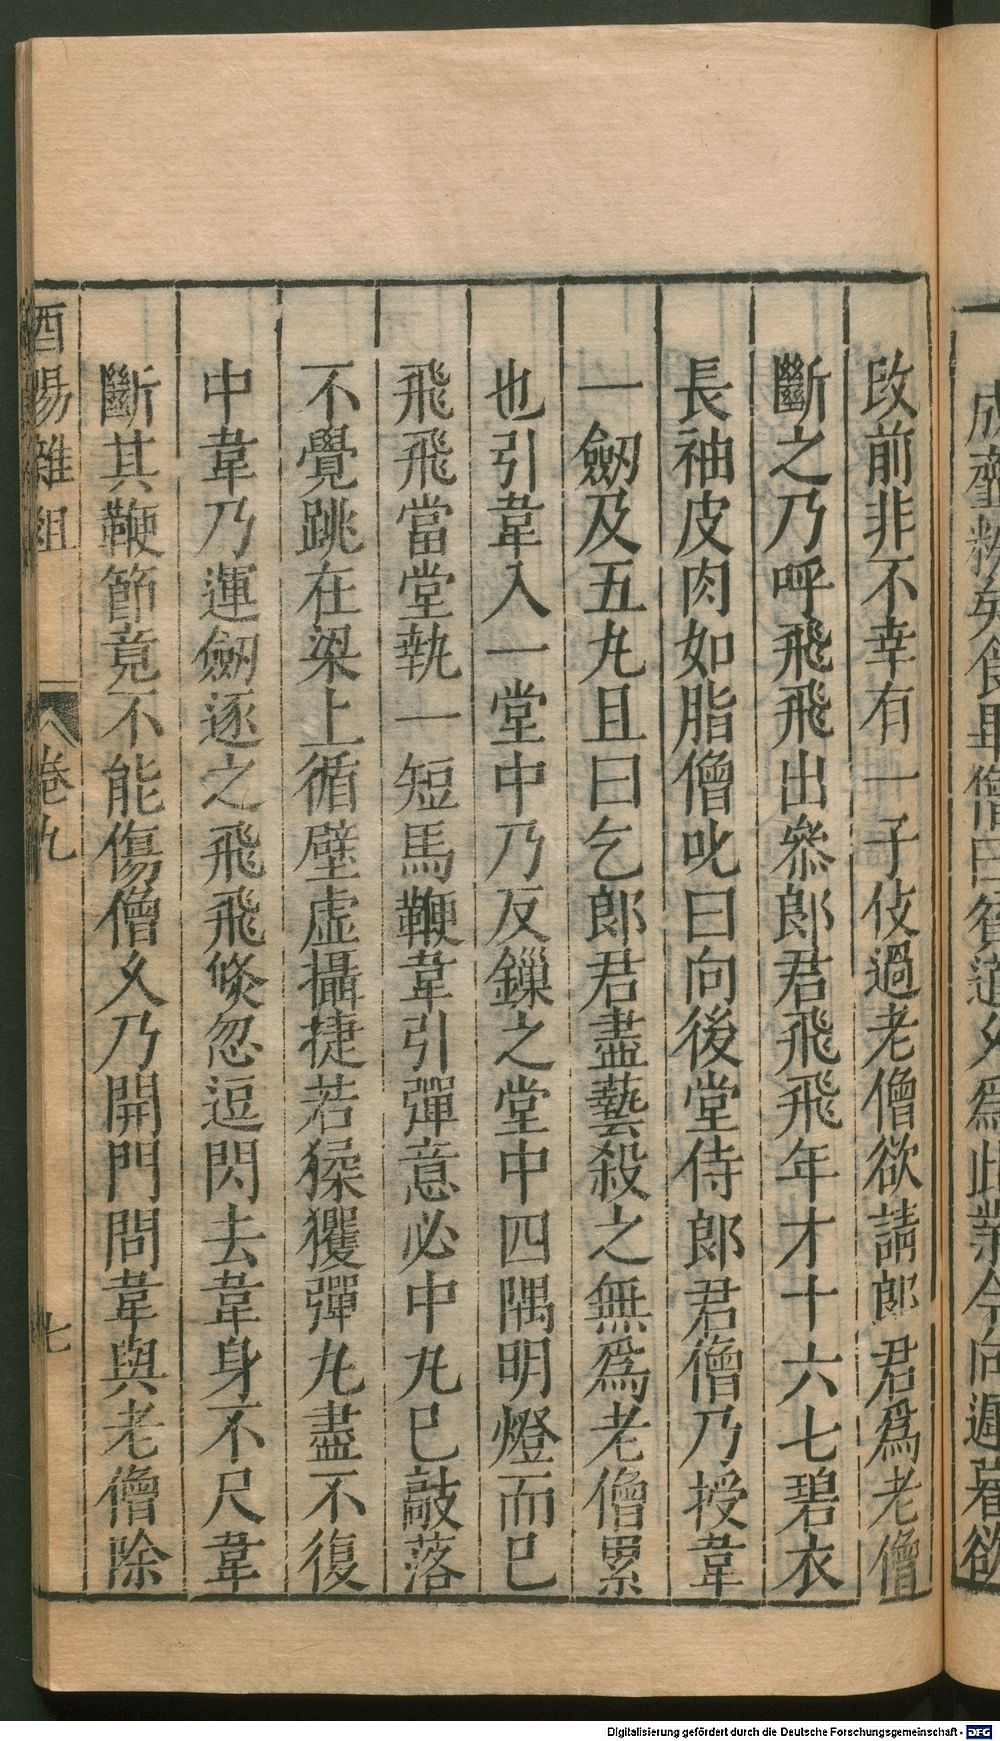 成虀粉矣食畢僧曰貧道久爲此業今向遲暮欲
改前非不幸有一子伎過老僧欲請郎君爲老僧
斷之乃呼飛飛出叅郎君飛飛年才十六七碧衣
長袖皮肉如脂僧叱曰向後堂侍郎君僧乃授韋
一劒及五丸且曰乞郎君盡藝殺之無爲老僧累
也引韋入一堂中乃反鏁之堂中四隅明燈而已
飛飛當堂執一短馬鞭韋引彈意必中丸已敲落
不覺跳在梁上循壁虛攝捷若猱玃彈丸盡不復
中韋乃運劒逐之飛飛倐忽逗閃去韋身不尺韋
斷其鞭節竟不能傷僧久乃開門問韋與老僧除
酉陽雜俎 卷九 七
Digitalisierung gefördert durch die Deutsche Forschungsgemeinschaft - DFG